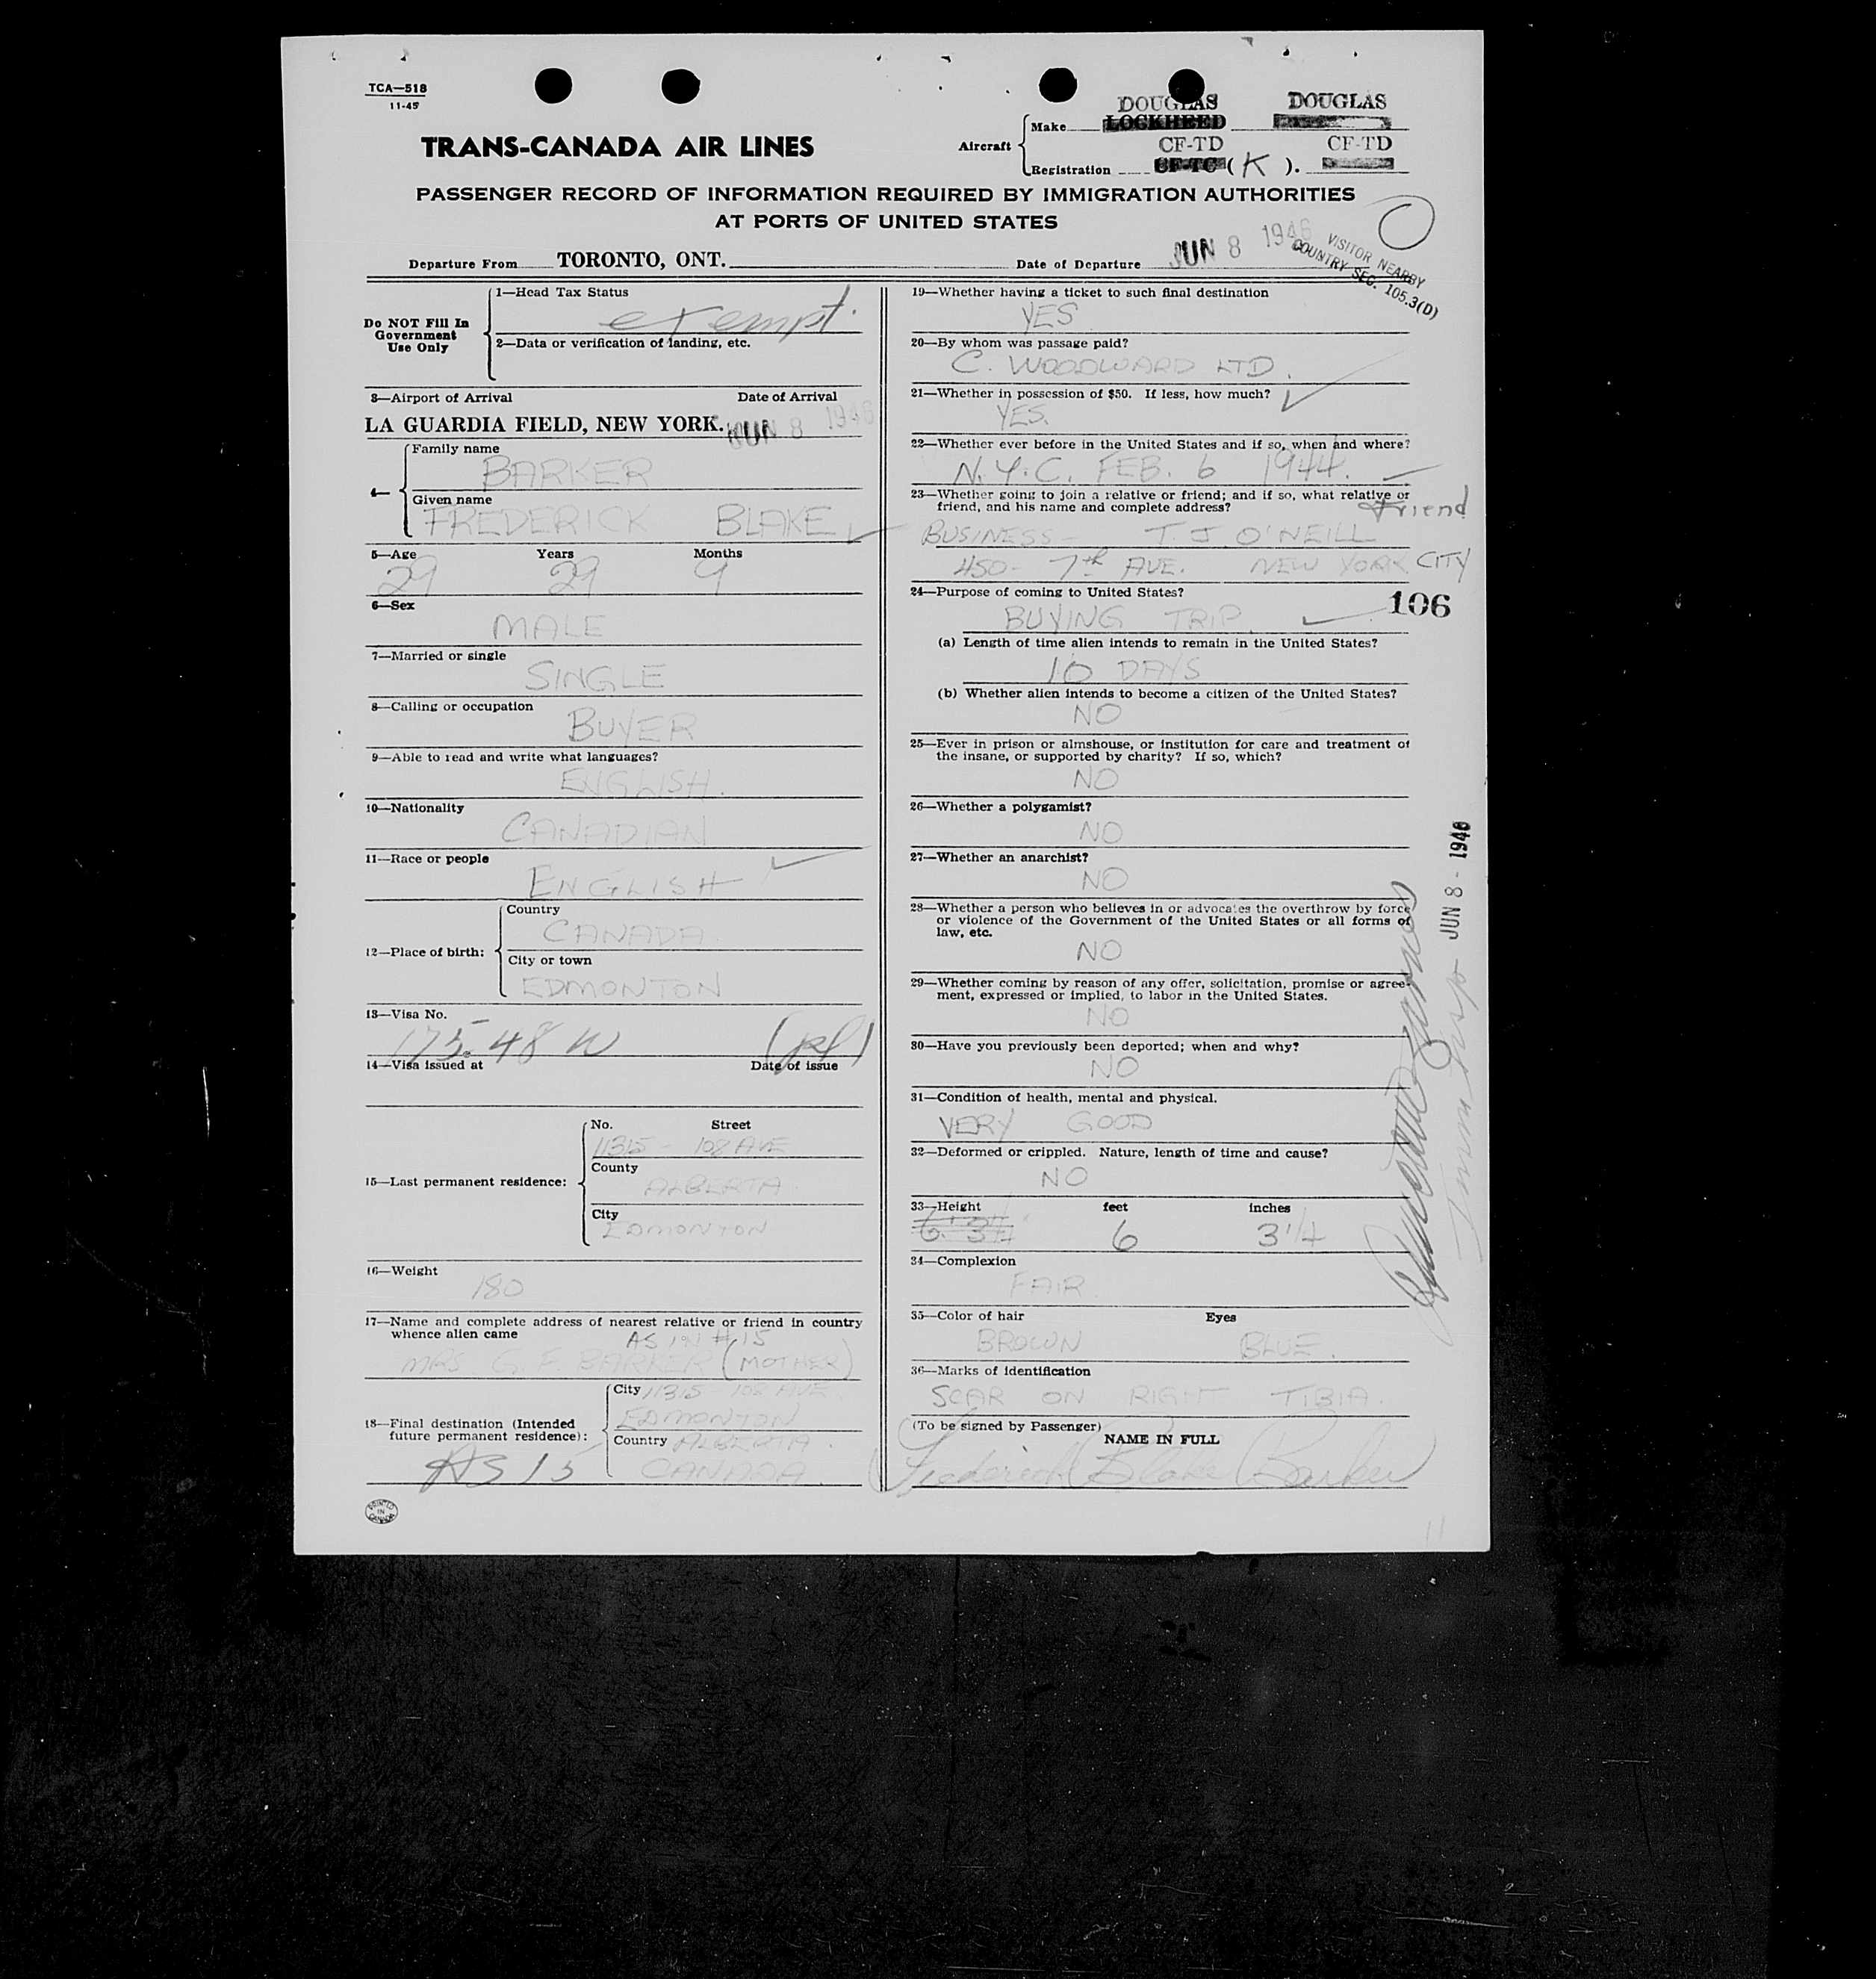 TCA—518
11-45
TRANS-CANADA AIR LINES
Aircraft
Make
DOUGLAS
DOUGLAS
LOCKHEED
Registration
CF-TD
CF-TD
CF-TC (K).
PASSENGER RECORD OF INFORMATION REQUIRED BY IMMIGRATION AUTHORITIES
AT PORTS OF UNITED STATES
Departure From TORONTO, ONT.
Date of Departure JUN 8 1946
VISITOR NEARBY
COUNTRY SEC. 105.3(D)
Do NOT Fill In
Government
Use Only
1—Head Tax Status
exempt.
2—Data or verification of landing, etc.
3—Airport of Arrival Date of Arrival
LA GUARDIA FIELD, NEW YORK. JUN 8 1946
4—
Family name
BARKER
Given name
FREDERICK BLAKE
5—Age Years Months
29 29 9
6—Sex
MALE
7—Married or single
SINGLE
8—Calling or occupation
BUYER
9—Able to read and write what languages?
ENGLISH.
10—Nationality
CANADIAN
11—Race or people
ENGLISH
12—Place of birth:
Country
CANADA
City or town
EDMONTON
13—Visa No.
175.48 W
14—Visa issued at Date of issue
15—Last permanent residence:
No. Street
11315 - 108 AVE
County
ALBERTA
City
EDMONTON
16—Weight
180
17—Name and complete address of nearest relative or friend in country
whence alien came
AS IN #15
MRS G. F. BARKER (MOTHER)
18—Final destination (Intended
future permanent residence):
City 11315 - 108 AVE
EDMONTON
Country ALBERTA.
CANADA.
AS 15
PRINTED
IN
CANADA
19—Whether having a ticket to such final destination
YES
20—By whom was passage paid?
C. WOODWARD LTD.
21—Whether in possession of $50. If less, how much?
YES.
22—Whether ever before in the United States and if so, when and where?
N.Y.C. FEB. 6 1944.
23—Whether going to join a relative or friend; and if so, what relative or
friend, and his name and complete address?
Friend
BUSINESS - T. J. O'NEILL
450 - 7th AVE. NEW YORK CITY
24—Purpose of coming to United States?
106
BUYING TRIP
(a) Length of time alien intends to remain in the United States?
10 DAYS
(b) Whether alien intends to become a citizen of the United States?
NO
25—Ever in prison or almshouse, or institution for care and treatment of
the insane, or supported by charity? If so, which?
NO
26—Whether a polygamist?
NO
27—Whether an anarchist?
NO
28—Whether a person who believes in or advocates the overthrow by force
or violence of the Government of the United States or all forms of
law, etc.
NO
29—Whether coming by reason of any offer, solicitation, promise or agree-
ment, expressed or implied, to labor in the United States.
NO
30—Have you previously been deported; when and why?
NO
31—Condition of health, mental and physical.
VERY GOOD
32—Deformed or crippled. Nature, length of time and cause?
NO
33—Height feet inches
6' 3¼ 6 3 1/4
34—Complexion
FAIR
35—Color of hair Eyes
BROWN BLUE.
36—Marks of identification
SCAR ON RIGHT TIBIA.
(To be signed by Passenger)
NAME IN FULL
Frederick Blake Barker
JUN 8 - 1946